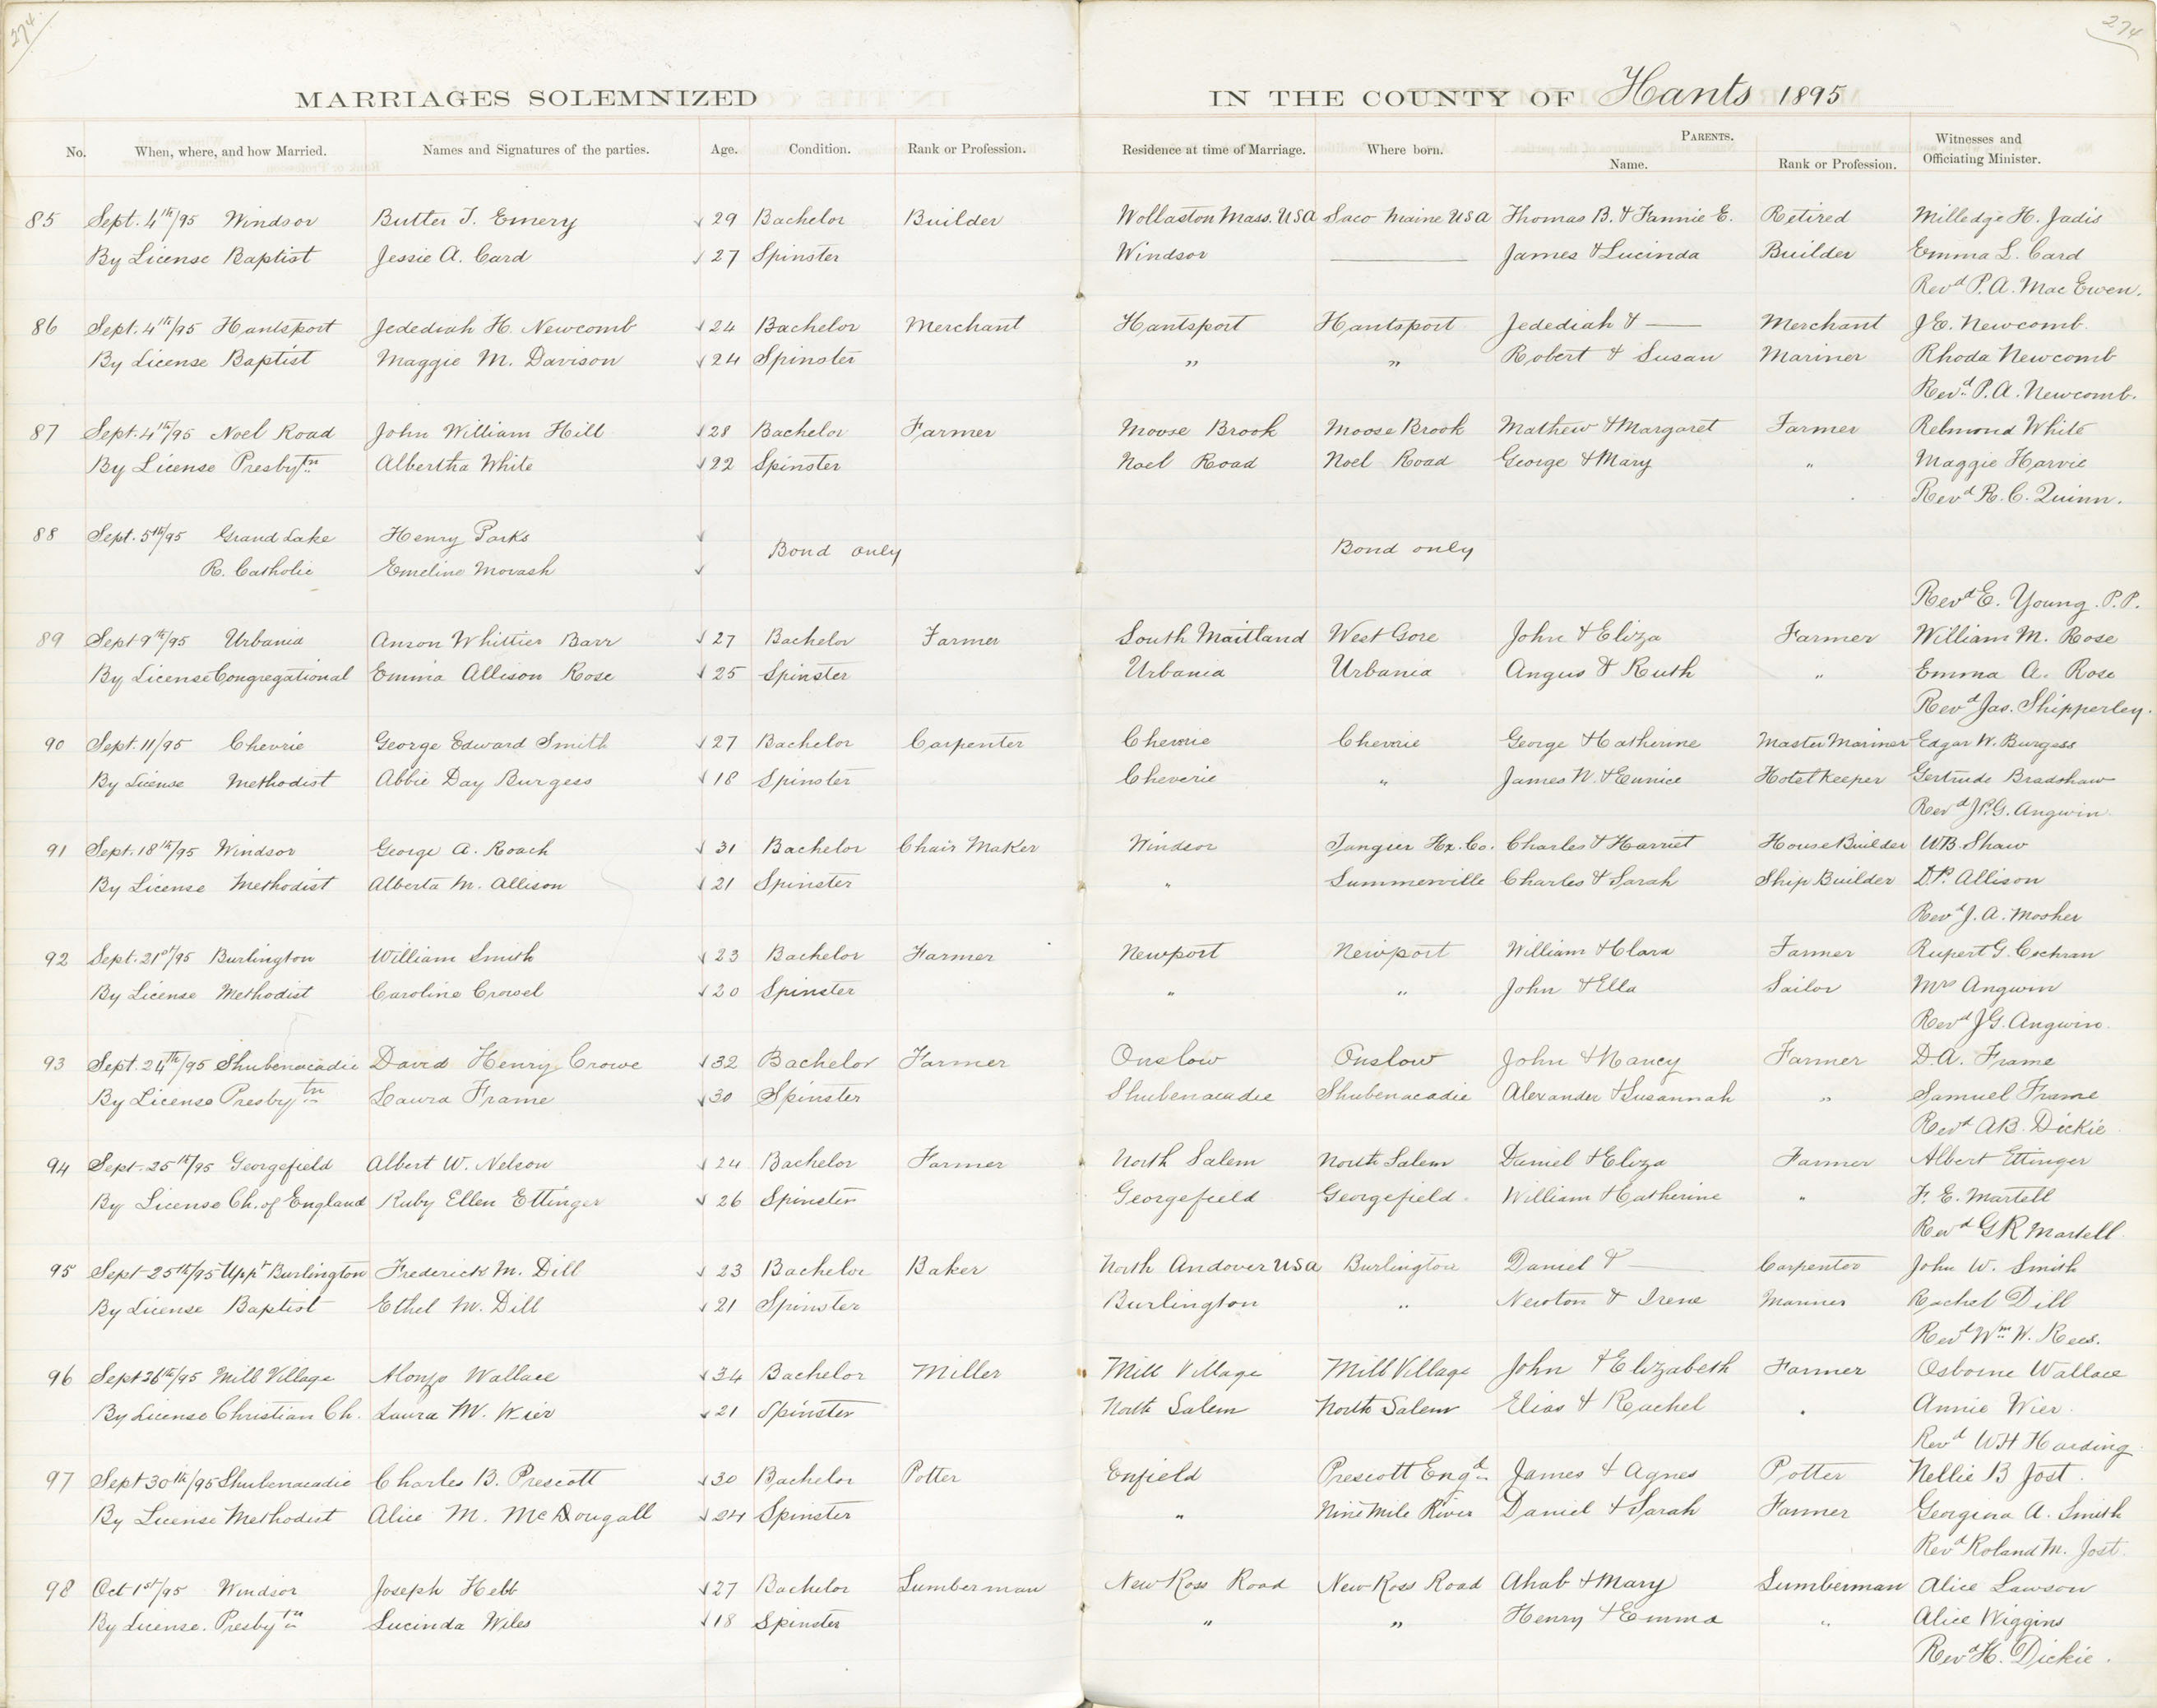 274
274
MARRIAGES SOLEMNIZED IN THE COUNTY OF Hants 1895
No. When, where, and how Married. Names and Signatures of the parties. Age. Condition. Rank or Profession. Residence at time of Marriage. Where born. PARENTS. Name. Rank or Profession. Witnesses and Officiating Minister.
85 Sept. 4th/95 Windsor Butter T. Emery √ 29 Bachelor Builder Wollaston Mass. USA Saco Maine USA Thomas B. & Fannie E. Retired Milledge H. Jadis
By License Baptist Jessie A. Card √ 27 Spinster Windsor — James & Lucinda Builder Emma L. Card
Revd P.A. MacEwen.
86 Sept. 4th/95 Hantsport Jedediah H. Newcomb √ 24 Bachelor Merchant Hantsport Hantsport Jedediah & — Merchant J.E. Newcomb.
By License Baptist Maggie M. Davison √ 24 Spinster " " Robert & Susan Mariner Rhoda Newcomb
Revd P.A. Newcomb.
87 Sept. 4th/95 Noel Road John William Hill √ 28 Bachelor Farmer Moose Brook Moose Brook Mathew & Margaret Farmer Redmond White
By License Presbytn Albertha White √ 22 Spinster Noel Road Noel Road George & Mary " Maggie Harvie
Revd R.C. Quinn.
88 Sept. 5th/95 Grand Lake Henry Parks √ Bond only Bond only
R. Catholic Emeline Movash √
Revd E. Young. P.P.
89 Sept 9th/95 Urbania Anson Whittier Barr √ 27 Bachelor Farmer South Maitland West Gore John & Eliza Farmer William M. Rose
By License Congregational Emma Allison Rose √ 25 Spinster Urbania Urbania Angus & Ruth " Emma A. Rose
Revd Jas. Shipperley.
90 Sept. 11/95 Chevrie George Edward Smith √ 27 Bachelor Carpenter Cheverie Cheverie George & Catherine Master Mariner Edgar W. Burgess
By License Methodist Abbie Day Burgess √ 18 Spinster Cheverie " James W. & Eunice Hotel Keeper Gertrude Bradshaw
Revd J.G. Angwin.
91 Sept. 18th/95 Windsor George A. Roach √ 31 Bachelor Chair Maker Windsor Tangier Hx. Co. Charles & Harriet House Builder W.B. Shaw
By License Methodist Alberta M. Allison √ 21 Spinster " Summerville Charles & Sarah Ship Builder D.P. Allison
Revd J.A. Mosher
92 Sept. 21st/95 Burlington William Smith √ 23 Bachelor Farmer Newport Newport William & Clara Farmer Rupert G. Cochran
By License Methodist Caroline Crowel √ 20 Spinster " " John & Ella Sailor Mrs Angwin
Revd J.G. Angwin.
93 Sept. 24th/95 Shubenacadie David Henry Crowe √ 32 Bachelor Farmer Onslow Onslow John & Nancy Farmer D.A. Frame
By License Presbytn Laura Frame √ 30 Spinster Shubenacadie Shubenacadie Alexander & Susannah " Samuel Frame
Revd A.B. Dickie
94 Sept. 25th/95 Georgefield Albert W. Nelson √ 24 Bachelor Farmer North Salem North Salem Daniel & Eliza Farmer Albert Ettinger
By License Ch. of England Ruby Ellen Ettinger √ 26 Spinster Georgefield Georgefield William & Catherine " F.E. Martell
Revd G R Martell
95 Sept 25th/95 Uppr Burlington Frederick M. Dill √ 23 Bachelor Baker North Andover USA Burlington Daniel & — Carpenter John W. Smith
By License Baptist Ethel M. Dill √ 21 Spinster Burlington " Newton & Irene Mariner Rachel Dill
Revd Wm W. Rees.
96 Sept 26th/95 Mill Village Alonzo Wallace √ 34 Bachelor Miller Mill Village Mill Village John & Elizabeth Farmer Osborne Wallace
By License Christian Ch. Laura M. Wier √ 21 Spinster North Salem North Salem Elias & Rachel " Annie Wier
Revd W H Harding
97 Sept 30th/95 Shubenacadie Charles B. Prescott √ 30 Bachelor Potter Enfield Prescott Engd James & Agnes Potter Nellie B Jost.
By License Methodist Alice M. McDougall √ 24 Spinster " Nine Mile River Daniel & Sarah Farmer Georgina A. Smith
Revd Roland M. Jost.
98 Oct 1st/95 Windsor Joseph Hebb √ 27 Bachelor Lumberman New Ross Road New Ross Road Ahab & Mary Lumberman Alice Lawson
By License. Presbytn Lucinda Wiles √ 18 Spinster " " Henry & Emma " Alice Wiggins
Revd H. Dickie.